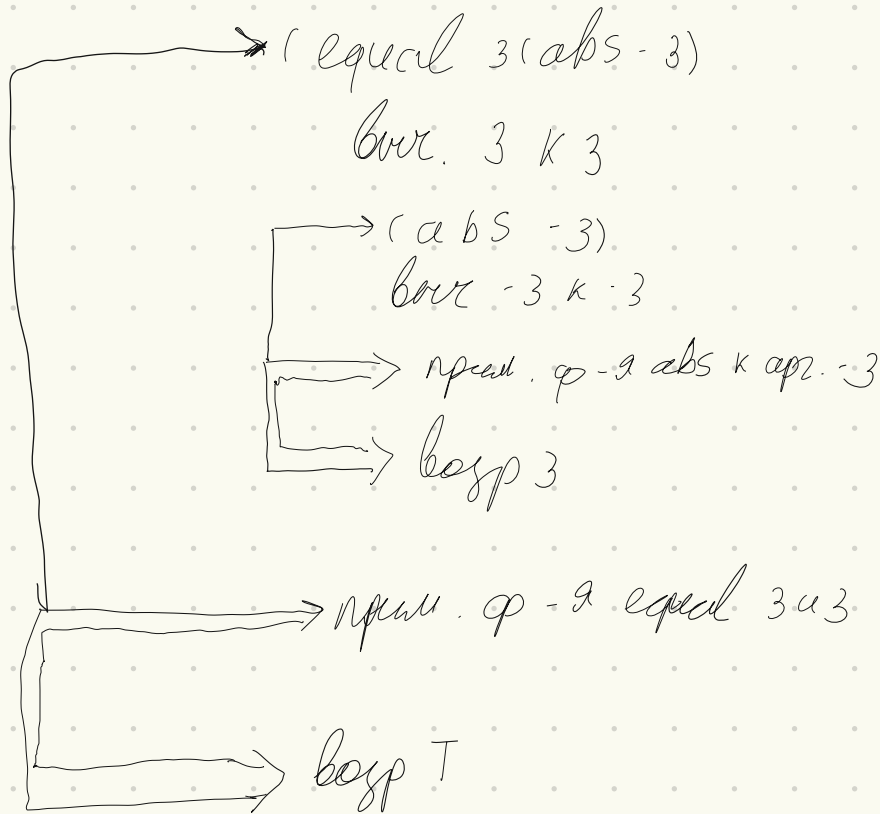 (equal 3 (abs -3)
выч. 3 к 3
(abs -3)
выч -3 к -3
прим. ф-я abs к арг. -3
возвр 3
прим. ф-я equal 3 и 3
возвр T